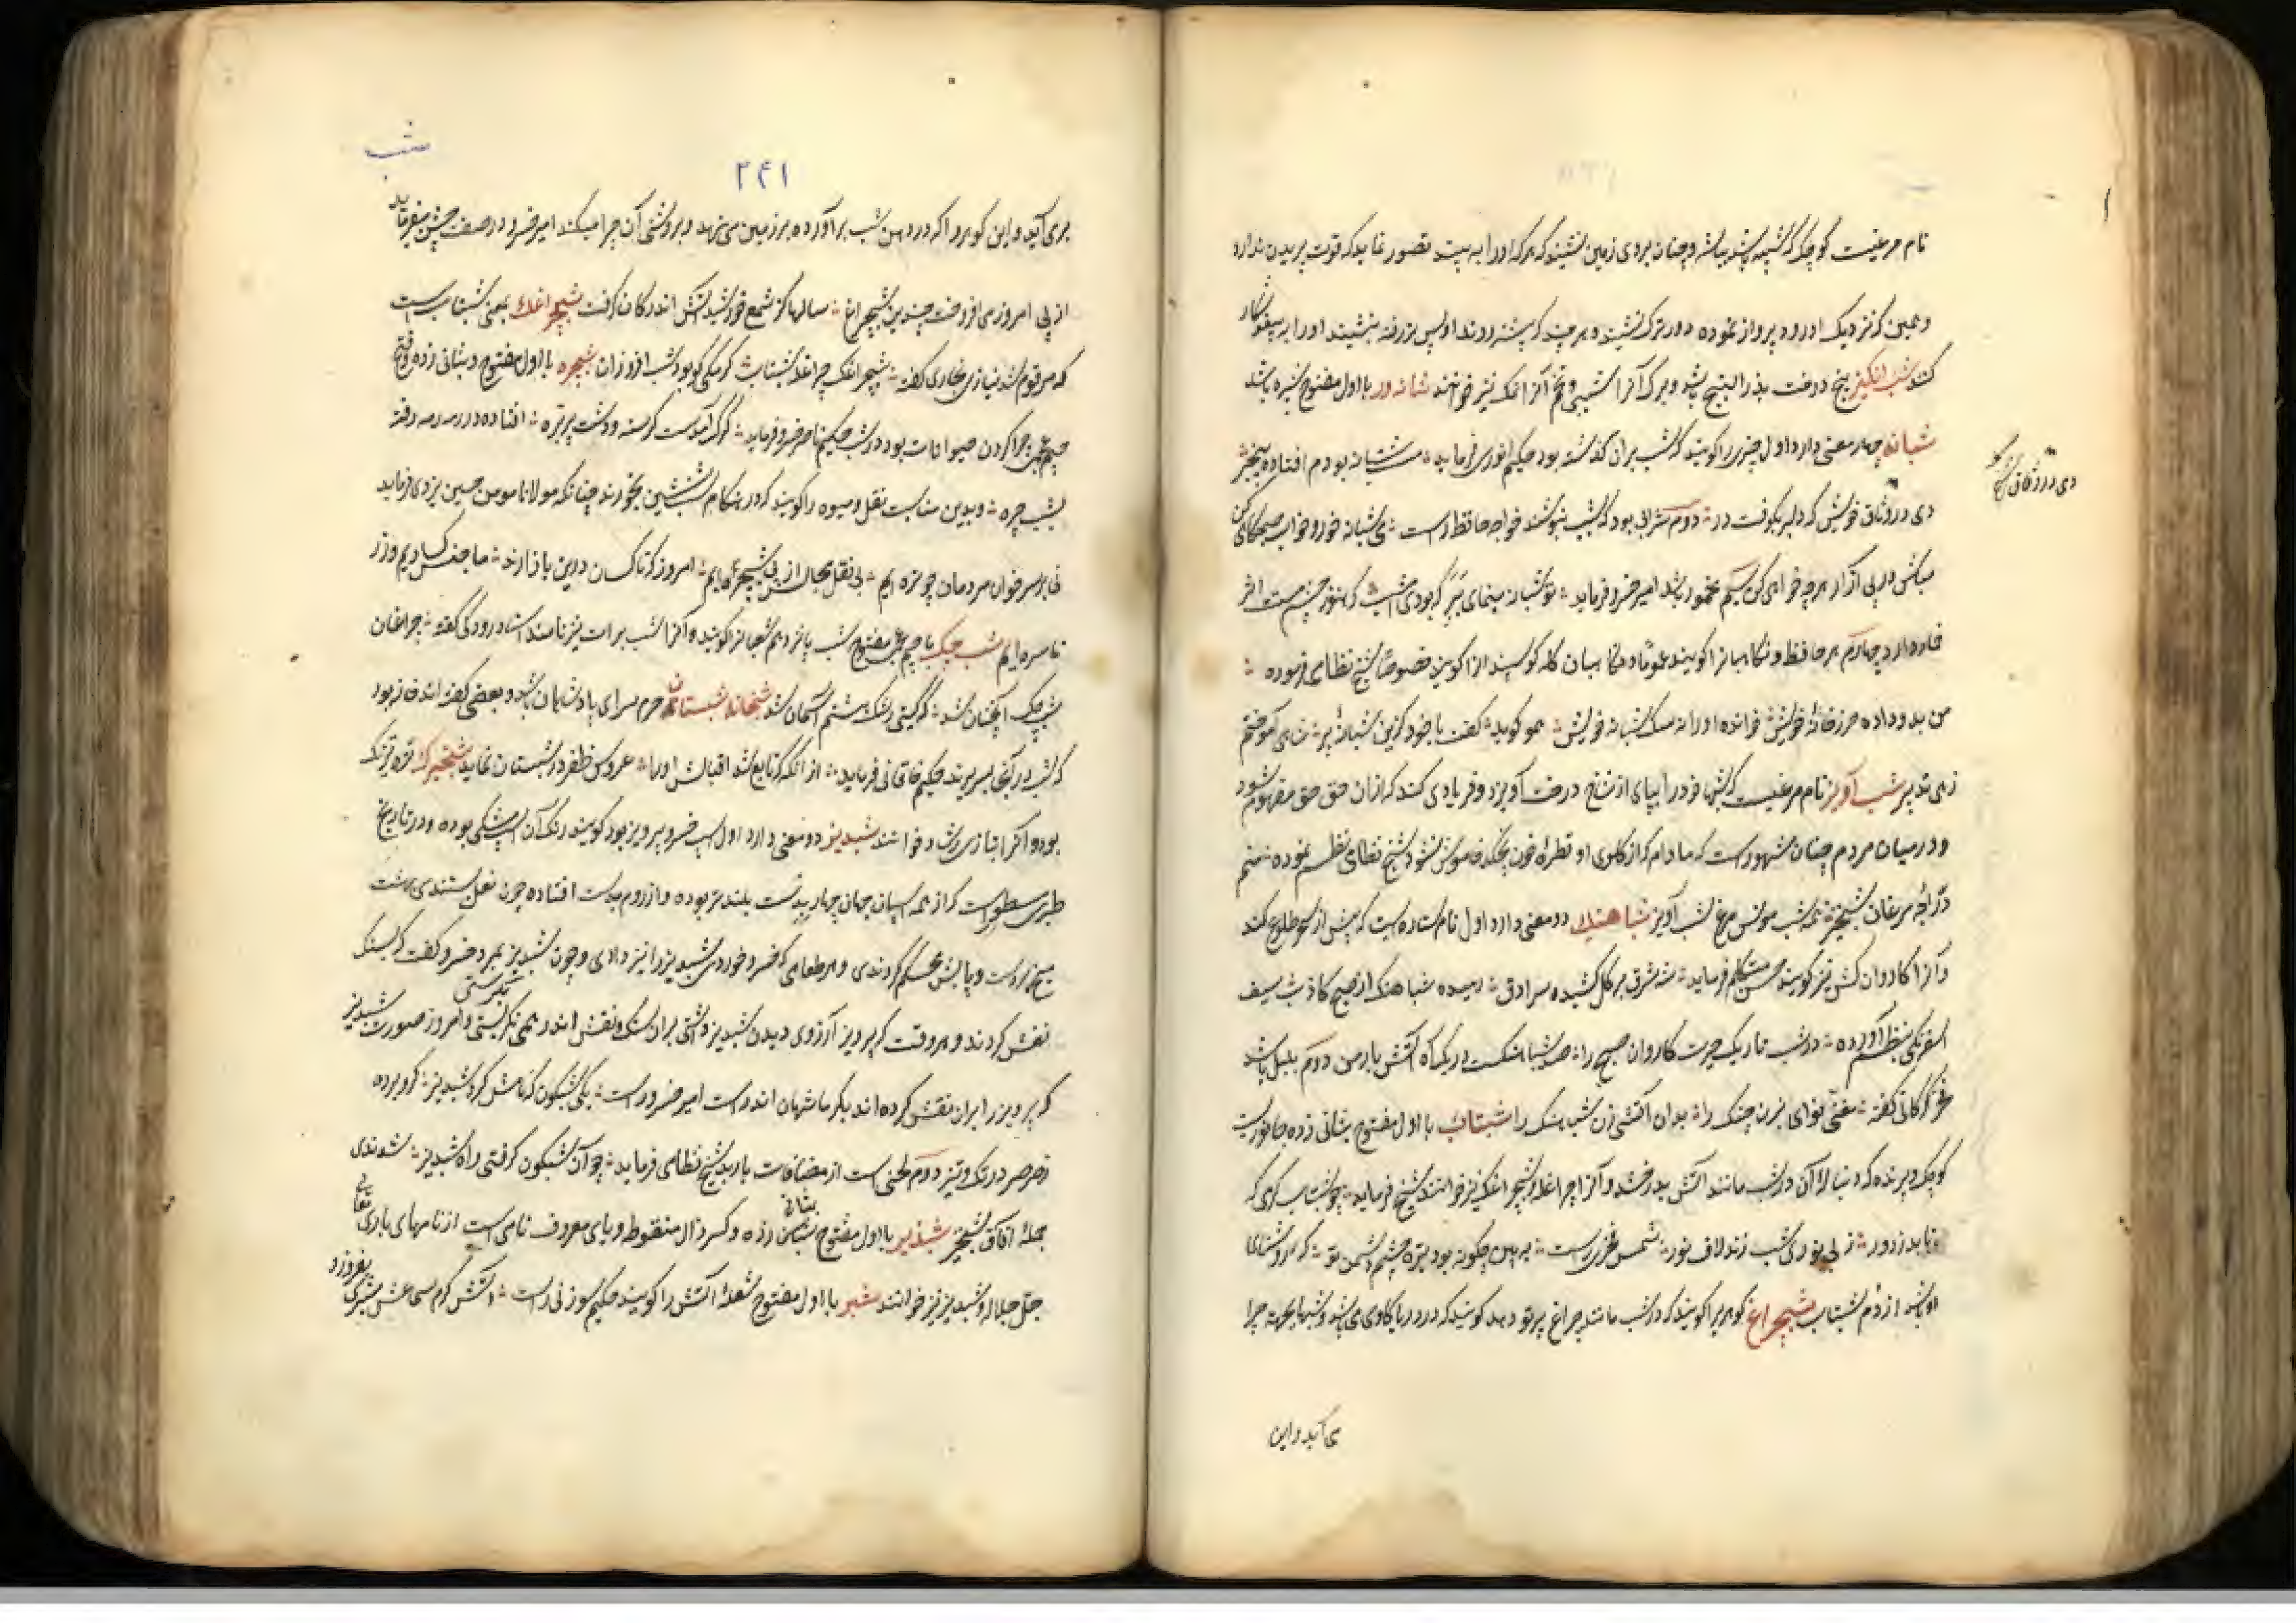 نام مرغیست کوچک که شبیه باشه و چنان بروی زمین نشیند که هر که او را بیند تصور نماید که قوت پریدن ندارد
و همین که نزدیک او رود پرواز نموده دورترک نشیند و هر چند که پیشتر روند او پس تر رفته بنشیند او را به
کنند شب انکیز بیخ درخت بذرالبنج باشد و برک آنرا و تخم آنرا نیز خوانند با اول مفتوح شپره باشد
شبانه چهار معنی دارد اول چیزی را کویند که شب بران کذشته بود حکیم انوری فرماید مست شبانه بودم افتاده بیخبر
دی در وثاق خویش که دلبر بکوفت در دوم شرابی بود که بشب بنوشند خواجه حافظ راست می شبانه خور و خواب صبحکاهی کن
مباش در پی آزار هر چه خواهی کن سیم مخمور باشد امیر خسرو فرماید تو شبانه مینمایی ببر که بودی امشب که هنوز چشم مستت اثر
خمار دارد چهارم هر حافظ و نکاهبانرا کویند عموما و نکاهبان کله کوسپند انرا کویند خصوصا شیخ نظامی فرموده
من بد و داده حرز خانه خویش خوانده او را نه سک شبانه خویش هم او کوید کفت با خود کزین شبانه پیر شاهی آموختم
زهی تدبیر شب آویز نام مرغیست که شبها خود را بپای از شاخ درخت آویزد و فریادی کند که ازان حق حق مفهوم شود
و در میان مردم چنان مشهور است که مادام که از کلوی او قطرهٔ خون نچکد خاموش نشود شیخ نظامی نظم نموده
مرغان شبخیز همه شب مونس مرغ شب آویز شباهنک دو معنی دارد اول نام ستاره است که پیش از صبح طلوع کند
و آنرا کاروان کش نیز کویند حسن متکلم فرماید ز مشرق بر کل کشیده سرادق دمیده شباهنک از صبح کاذب سیف
اسفرنکی بنظم آورده در شب تاریک حیرت کاروان صبح را صد شباهنکست در یک آه آتش بار من دوم بلبل باشد
فخر کرکانی کفته مغنی نوای بزن چنک را بدان آتشی زن شباهنک را شبتاب با اول مفتوح بثانی زده جانوریست
کوچک و پرنده که دنبالهٔ آن در شب مانند آتش بدرخشد و آنرا چراغله و شبچراغک نیز خوانند شیخ فرماید چو شب تاب کرمی که
تابد ز دور ز بی نوری شب زند لاف نور شمس فخری راست ببین چکونه بود تیره چشم دشمن تو که روشنایی
او باشد از دم شبتاب شبچراغ کوهریرا کویند که در شب مانند چراغ پرتو دهد کویند که در دریا کاوی می باشد و شبها بجهت چرا
می آید و این
شب
۲۴۱
بر می آید و این کوهر را که در دهن شب بر آورده بر زمین می نهد و بروشنی آن چرا میکند امیر خسرو در صفت چنین میفرماید
از پی امروز می افروخت چندین شبچراغ سالها کز شمع خورشید آتش اندر کان کرفت شبچراغک بمعنی شبتاب است
که مرقوم شد نیازی بخاری کفته شبچراغک چراغله شبتاب کرمکی کو بود شب افروزان شبچره با اول مفتوح و بثانی زده و فتح
جیم عجمی چرا کردن حیوانات بود در شب حکیم ناصر خسرو فرماید کرک آمدست کرسنه و دشت پر بره افتاده در رمه رمه رفته
بشب چره و بدین مناسبت نقل و میوه را کویند که در هنکام شب نشینی بخورند چنانکه مولانا مومن حسین یزدی فرماید
نی بر سر خوان مردمان چون تره ایم بی نقل مجالس از پی شبچره ایم امروز که ناکسان درین بازارند ما جنس کسادیم و زر
ناسره ایم شب چک با جیم عجمی مفتوح شب پانزدهم شعبانرا کویند و آنرا شب برات نیز نامند استاد رودکی کفته چراغان
شب چک آنچنان شد که کیتی رشک هشتم آسمان شد شبخانه شبستان حرم سرای پادشاهان باشد و بعضی کفته اند خانه بود
که شب در انجا بسر برند حکیم خاقانی فرماید از آنکه که تابع شد اقبالش او را عروس ظفر در شبستان نماید
بود و آنرا بتازی رشاد خوانند شبدیز دو معنی دارد اول اسپ خسرو پرویز بود کویند رنک آن اسپ مشکی بوده و در تاریخ
طبری مسطور است که از همه اسپان جهان چهار بدست بلندتر بوده و از روم بدست افتاده چون نعل بستندی بهشت
میخ بر دست و پایش محکم کردندی و هر طعامی که خسرو خوردی شبدیز را نیز دادی و چون شبدیز بمرد خسرو کفت که بسنک
نقش کردند و هر وقت که پرویز آرزوی دیدن شبدیز داشتی بران سنک و نقش اندر همی نکریستی و امروز صورت شبدیز
که پرویز بر ایران نقش کرده اند بکرمانشهان اندرست امیر خسرو راست یکی شبکون که نامش کرد شبدیز کرو برده
ز صرصر در تک و تیز دوم لحنی است از مضافات باربد شیخ نظامی فرماید چو آن شبکون کرفتی راه شبدیز شدندی
جملهٔ آفاق شبخیز شبذیر با اول مفتوح بثانی زده و کسر ذال منقوطه و یای معروف نامی است از نامهای باری تعالی
جل جلاله و شبدیز نیز خوانند شبر با اول مفتوح شعلهٔ آتش را کویند حکیم سوزنی راست